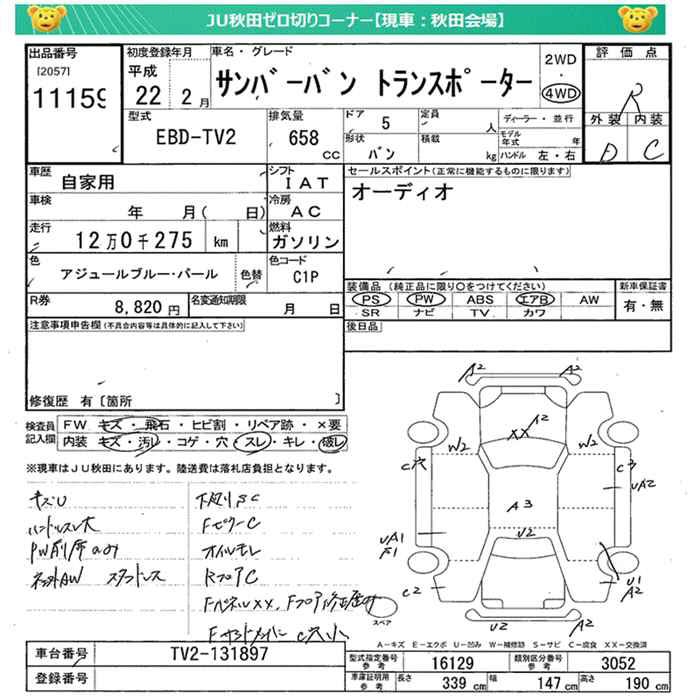 JU秋田ゼロ切りコーナー【現車：秋田会場】
出品番号 初度登録年月 車名・グレード 2WD 評価点
[2057] 平成 サンバーバン トランスポーター ・ R
11159 22 2月 4WD 外装 内装
型式 排気量 ドア 5 定員 人 ディーラー・並行 D C
EBD-TV2 658 cc 形状 バン 積載 kg モデル年式 年
ハンドル 左・右
車歴 自家用 シフト IAT セールスポイント(正常に機能するものに限ります)
車検 年 月( 日) 冷房 AC オーディオ
走行 12万0千275 km 燃料 ガソリン
色 アジュールブルー・パール 色替 色コード C1P 装備品 (純正品に限り○をつけてください) 新車保証書
R券 8,820円 名変通知期限 月 日 PS PW ABS エアB AW 有・無
SR ナビ TV カワ
注意事項申告欄(不具合内容等は具体的に記入して下さい) 後日品
修復歴 有〔箇所 〕
検査員記入欄 FW キズ・飛石・ヒビ割・リペア跡・×要
内装 キズ・汚レ・コゲ・穴・スレ・キレ・破レ
※現車はJU秋田にあります。陸送費は落札店負担となります。
キズU 下廻りSC
ハンドルスレ大 FピラーC
PW前席のみ オイルモレ
社外AW スタッドレス RフロアC
FパネルXX、Fフロア修正歴有
A2 A2
A2
XX
W2 W2
C穴 C3
UA2
A3
UA1 U2
F1
U1
C2 A2
U2 A2
スペア
A－キズ E－エクボ U－凹み W－補修跡 S－サビ C－腐食 XX－交換済
車台番号 TV2-131897 型式指定番号 参考 16129 類別区分番号 参考 3052
登録番号 車庫証明用 参考 長さ 339 cm 幅 147 cm 高さ 190 cm